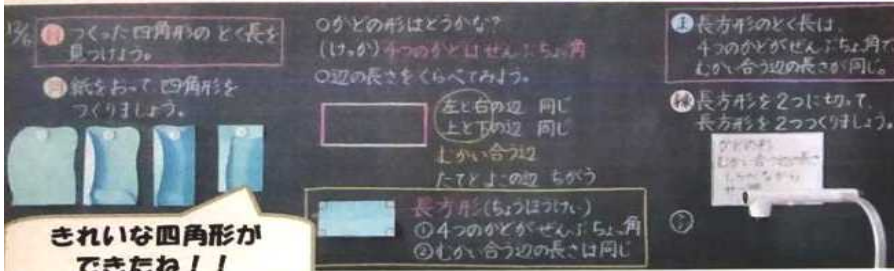 つくった四角形の とく長を
見つけよう。
紙をおって、四角形を
つくりましょう。
きれいな四角形が
できたね！！
○かどの形はどうかな？
(けっか)4つのかどはぜんぶちょっ角
○辺の長さをくらべてみよう。
左と右の辺 同じ
上と下の辺 同じ
むかい合う辺
たてとよこの辺 ちがう
長方形(ちょうほうけい)
①4つのかどがぜんぶちょっ角
②むかい合う辺の長さは同じ
長方形のとく長は、
4つのかどがぜんぶちょっ角で
むかい合う辺の長さが同じ。
長方形を2つに切って、
長方形を2つつくりましょう。
かどの形
むかい合う辺の長さ